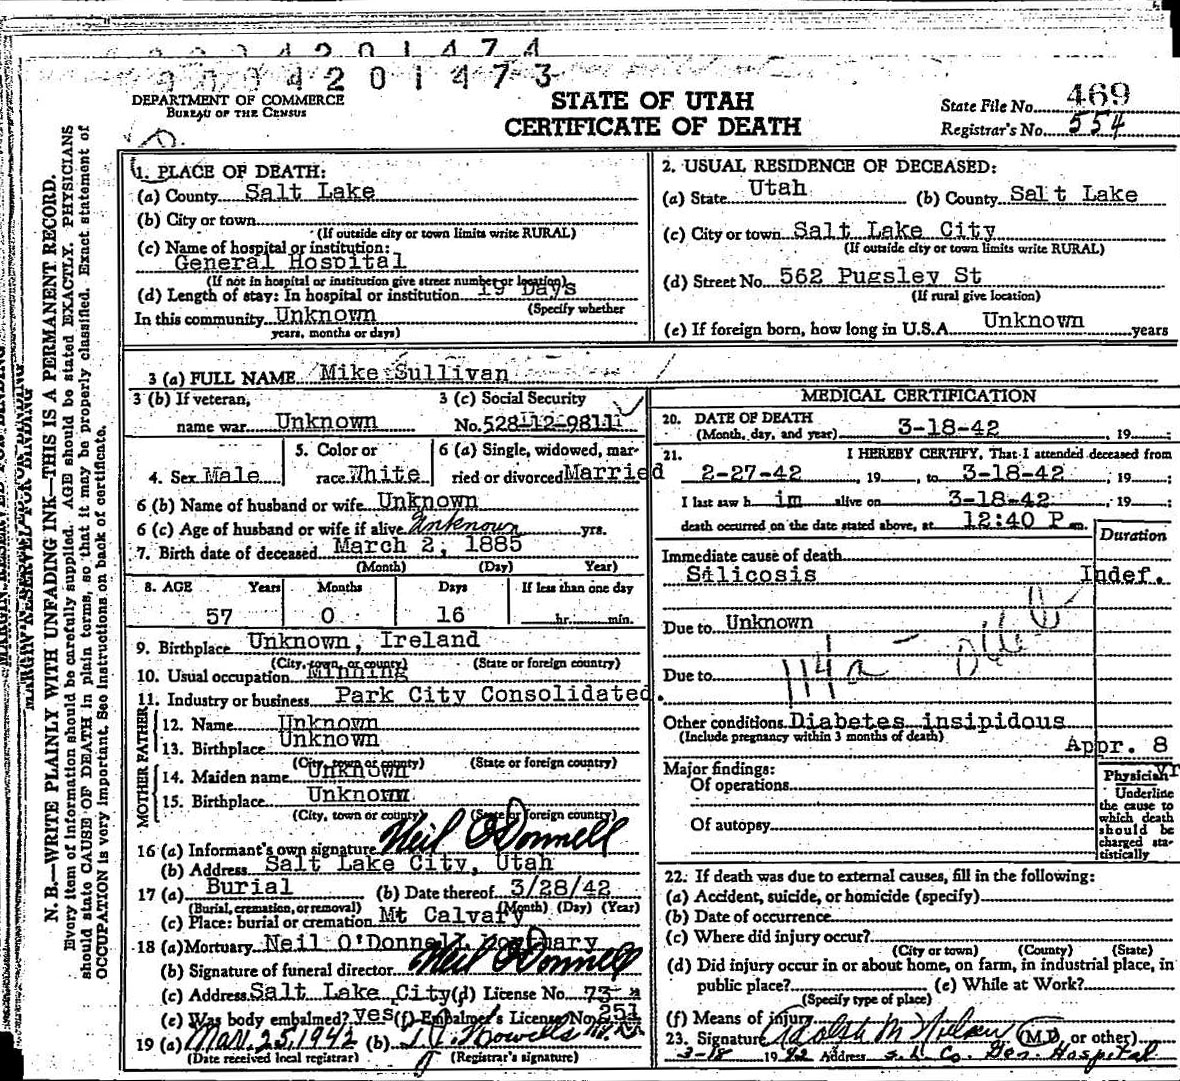 2 0 1 4 7 4
4 2 0 1 4 7 3
DEPARTMENT OF COMMERCE
BUREAU OF THE CENSUS
STATE OF UTAH
CERTIFICATE OF DEATH
State File No. 469
Registrar's No. 554
MARGIN RESERVED FOR BINDING
N. B.—WRITE PLAINLY WITH UNFADING INK—THIS IS A PERMANENT RECORD.
Every item of information should be carefully supplied. AGE should be stated EXACTLY. PHYSICIANS
should state CAUSE OF DEATH in plain terms, so that it may be properly classified. Exact statement of
OCCUPATION is very important. See instructions on back of certificate.
1. PLACE OF DEATH:
(a) County Salt Lake
(b) City or town
(If outside city or town limits write RURAL)
(c) Name of hospital or institution:
General Hospital
(If not in hospital or institution give street number or location)
(d) Length of stay: In hospital or institution 19 Days
(Specify whether
In this community Unknown
years, months or days)
2. USUAL RESIDENCE OF DECEASED:
(a) State Utah (b) County Salt Lake
(c) City or town Salt Lake City
(If outside city or town limits write RURAL)
(d) Street No. 562 Pugsley St
(If rural give location)
(e) If foreign born, how long in U.S.A. Unknown years
3 (a) FULL NAME Mike Sullivan
3 (b) If veteran, 3 (c) Social Security
name war Unknown No. 528-12-9811
4. Sex Male 5. Color or race White 6 (a) Single, widowed, married or divorced Married
6 (b) Name of husband or wife Unknown
6 (c) Age of husband or wife if alive Unknown yrs.
7. Birth date of deceased March 2, 1885
(Month) (Day) Year)
8. AGE Years Months Days If less than one day
57 0 16 hr. min.
9. Birthplace Unknown, Ireland
(City, town, or county) (State or foreign country)
10. Usual occupation Minning
11. Industry or business Park City Consolidated.
FATHER
12. Name Unknown
13. Birthplace Unknown
(City, town or county) (State or foreign country)
MOTHER
14. Maiden name Unknown
15. Birthplace Unknown
(City, town or county) (State or foreign country)
16 (a) Informant's own signature Neil O'Donnell
(b) Address Salt Lake City, Utah
17 (a) Burial (b) Date thereof 3/28/42
(Burial, cremation, or removal) (Month) (Day) (Year)
(c) Place: burial or cremation Mt Calvary
18 (a) Mortuary Neil O'Donnell Mortuary
(b) Signature of funeral director Neil O'Donnell
(c) Address Salt Lake City (d) License No. 73
(e) Was body embalmed? yes (f) Embalmer's License No. 251
19 (a) Mar. 25, 1942 (b)
(Date received local registrar) (Registrar's signature)
MEDICAL CERTIFICATION
20. DATE OF DEATH
(Month, day, and year) 3-18-42, 19 ;
21. I HEREBY CERTIFY, That I attended deceased from
2-27-42, 19 , to 3-18-42, 19 ;
I last saw h im alive on 3-18-42, 19 ;
death occurred on the date stated above, at 12:40 P m.
Duration
Immediate cause of death
Silicosis Indef.
Due to Unknown
Due to 114a
Other conditions Diabetes insipidous
(Include pregnancy within 3 months of death)
Appr. 8 yr
Major findings:
Of operations
Of autopsy
Physician
Underline
the cause to
which death
should be
charged sta-
tistically
22. If death was due to external causes, fill in the following:
(a) Accident, suicide, or homicide (specify)
(b) Date of occurrence
(c) Where did injury occur?
(City or town) (County) (State)
(d) Did injury occur in or about home, on farm, in industrial place, in
public place? (e) While at Work?
(Specify type of place)
(f) Means of injury
23. Signature Adolph M Nielsen (M.D. or other)
3-18 1942 Address S. L. Co. Gen. Hospital